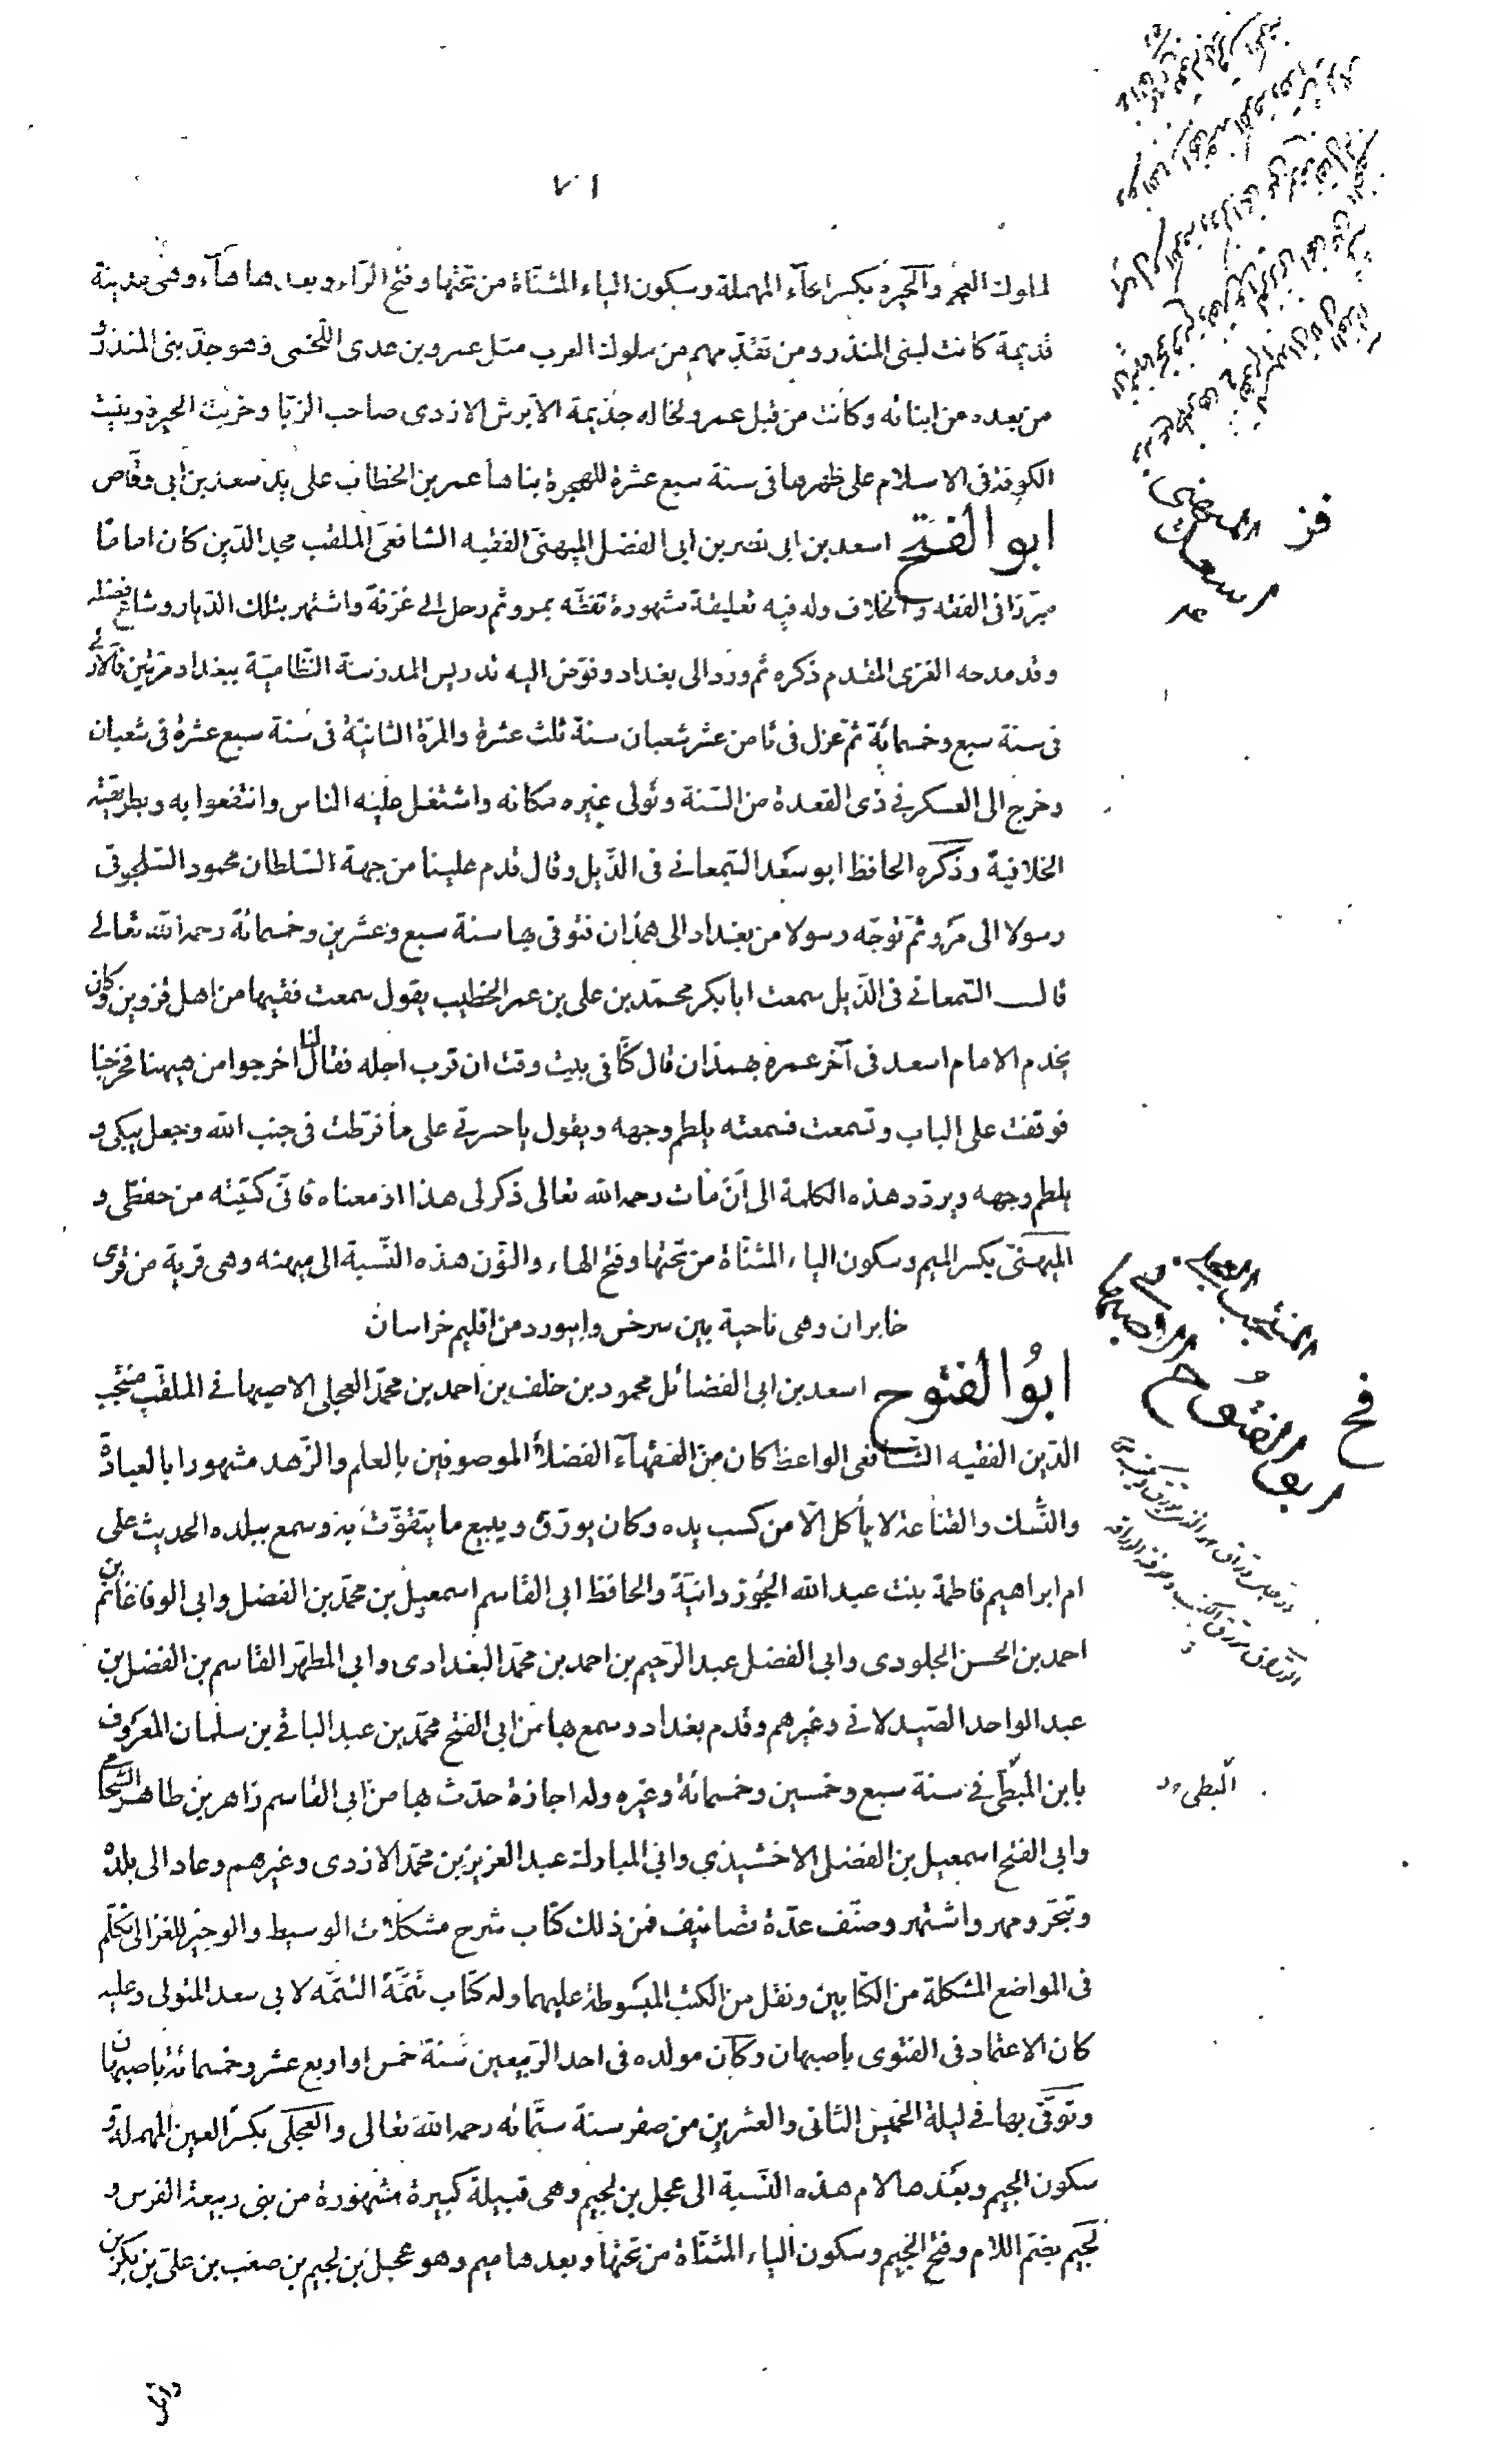 ٧١
لملوك العجم والحيرة بكسر الحاء المهملة وسكون الياء المثناة من تحتها وفتح الراء وبعدها هاء وهى مدينة
قديمة كانت لبنى المنذر ومن تقدمهم من ملوك العرب مثل عمرو بن عدى اللخمى وهو جد بنى المنذر و
من بعده من ابنائه وكانت من قبل عمرو لخاله جذيمة الابرش الازدى صاحب الزبا وخربت الحيرة وبنيت
الكوفة فى الاسلام على ظهرها فى سنة سبع عشرة للهجرة بناها عمر بن الخطاب على يد سعد بن ابى وقاص
ابو الفتح اسعد بن ابى نصر بن ابى الفضل الميهنى الفقيه الشافعى الملقب مجد الدين كان اماما
مبرزا فى الفقه والخلاف وله فيه تعليقة مشهورة تفقه بمرو ثم رحل الى غزنة واشتهر بتلك الديار وشاع فضله
وقد مدحه الغزى المقدم ذكره ثم ورد الى بغداد وفوض اليه تدريس المدرسة النظامية ببغداد مرتين فالاولى
فى سنة سبع وخمسمائة ثم عزل فى ثامن عشر شعبان سنة ثلث عشرة والمرة الثانية فى سنة سبع عشرة فى شعبان
وخرج الى العسكر فى ذى القعدة من السنة وتولى غيره مكانه واشتغل عليه الناس وانتفعوا به وبطريقته
الخلافية وذكره الحافظ ابو سعد السمعانى فى الذيل وقال قدم علينا من جهة السلطان محمود السلجوقى
رسولا الى مرو ثم توجه رسولا من بغداد الى همذان فتوفى بها سنة سبع وعشرين وخمسمائة رحمه الله تعالى
قال السمعانى فى الذيل سمعت ابا بكر محمد بن على بن عمر الخطيب يقول سمعت فقيها من اهل قزوين وكان
يخدم الامام اسعد فى آخر عمره بهمذان قال كنا فى بيت وقت ان قرب اجله فقال لنا اخرجوا من هيهنا فخرجنا
فوقفت على الباب وتسمعت فسمعته يلطم وجهه ويقول يا حسرتى على ما فرطت فى جنب الله وجعل يبكى و
يلطم وجهه ويردد هذه الكلمة الى ان مات رحمه الله تعالى ذكر لى هذا او معناه فانى كتبته من حفظى و
الميهنى بكسر الميم وسكون الياء المثناة من تحتها وفتح الهاء والنون هذه النسبة الى ميهنه وهى قرية من قرى
خابران وهى ناحية بين سرخس وابيورد من اقليم خراسان
ابو الفتوح اسعد بن ابى الفضائل محمود بن خلف بن احمد بن محمد العجلى الاصبهانى الملقب منتجب
الدين الفقيه الشافعى الواعظ كان من الفقهاء الفضلاء الموصوفين بالعلم والزهد مشهورا بالعبادة
والنسك والقناعة لا يأكل الا من كسب يده وكان يورق ويبيع ما يتقوت به وسمع ببلده الحديث على
ام ابراهيم فاطمة بنت عبد الله الجوزدانية والحافظ ابى القاسم اسمعيل بن محمد بن الفضل وابى الوفا غانم بن
احمد بن الحسن الجلودى وابى الفضل عبد الرحيم بن احمد بن محمد البغدادى وابى المطهر القاسم بن الفضل بن
عبد الواحد الصيدلانى وغيرهم وقدم بغداد وسمع بها من ابى الفتح محمد بن عبد الباقى بن سلمان المعروف
بابن البطى فى سنة سبع وخمسين وخمسمائة وغيره وله اجازة حدث بها من ابى القاسم زاهر بن طاهر الشحامى
وابى الفتح اسمعيل بن الفضل الاخشيذى وابى المبارك عبد العزيز بن محمد الازدى وغيرهم وعاد الى بلده
وتبحر ومهر واشتهر وصنف عدة تصانيف فمن ذلك كتاب شرح مشكلات الوسيط والوجيز للغزالى تكلم
فى المواضع المشكلة من الكتابين ونقل من الكتب المبسوطة عليهما وله كتاب تتمة التتمه لابى سعد المتولى وعليه
كان الاعتماد فى الفتوى باصبهان وكان مولده فى احد الربيعين سنة خمس او اربع عشر وخمسمائة باصبهان
وتوفى بها فى ليلة الخميس الثانى والعشرين من صفر سنة ستمائه رحمه الله تعالى والعجلى بكسر العين المهملة و
سكون الجيم وبعدها لام هذه النسبة الى عجل بن لجيم وهى قبيلة كبيرة مشهورة من بنى ربيعة الفرس و
لجيم بضم اللام وفتح الجيم وسكون الياء المثناة من تحتها وبعدها ميم وهو عجل بن لجيم بن صعب بن على بن بكر بن
فز
اسعد الميهنى
فح
ابو الفتوح
المنتجب العجلى
الاصبهانى
البطى
وائل